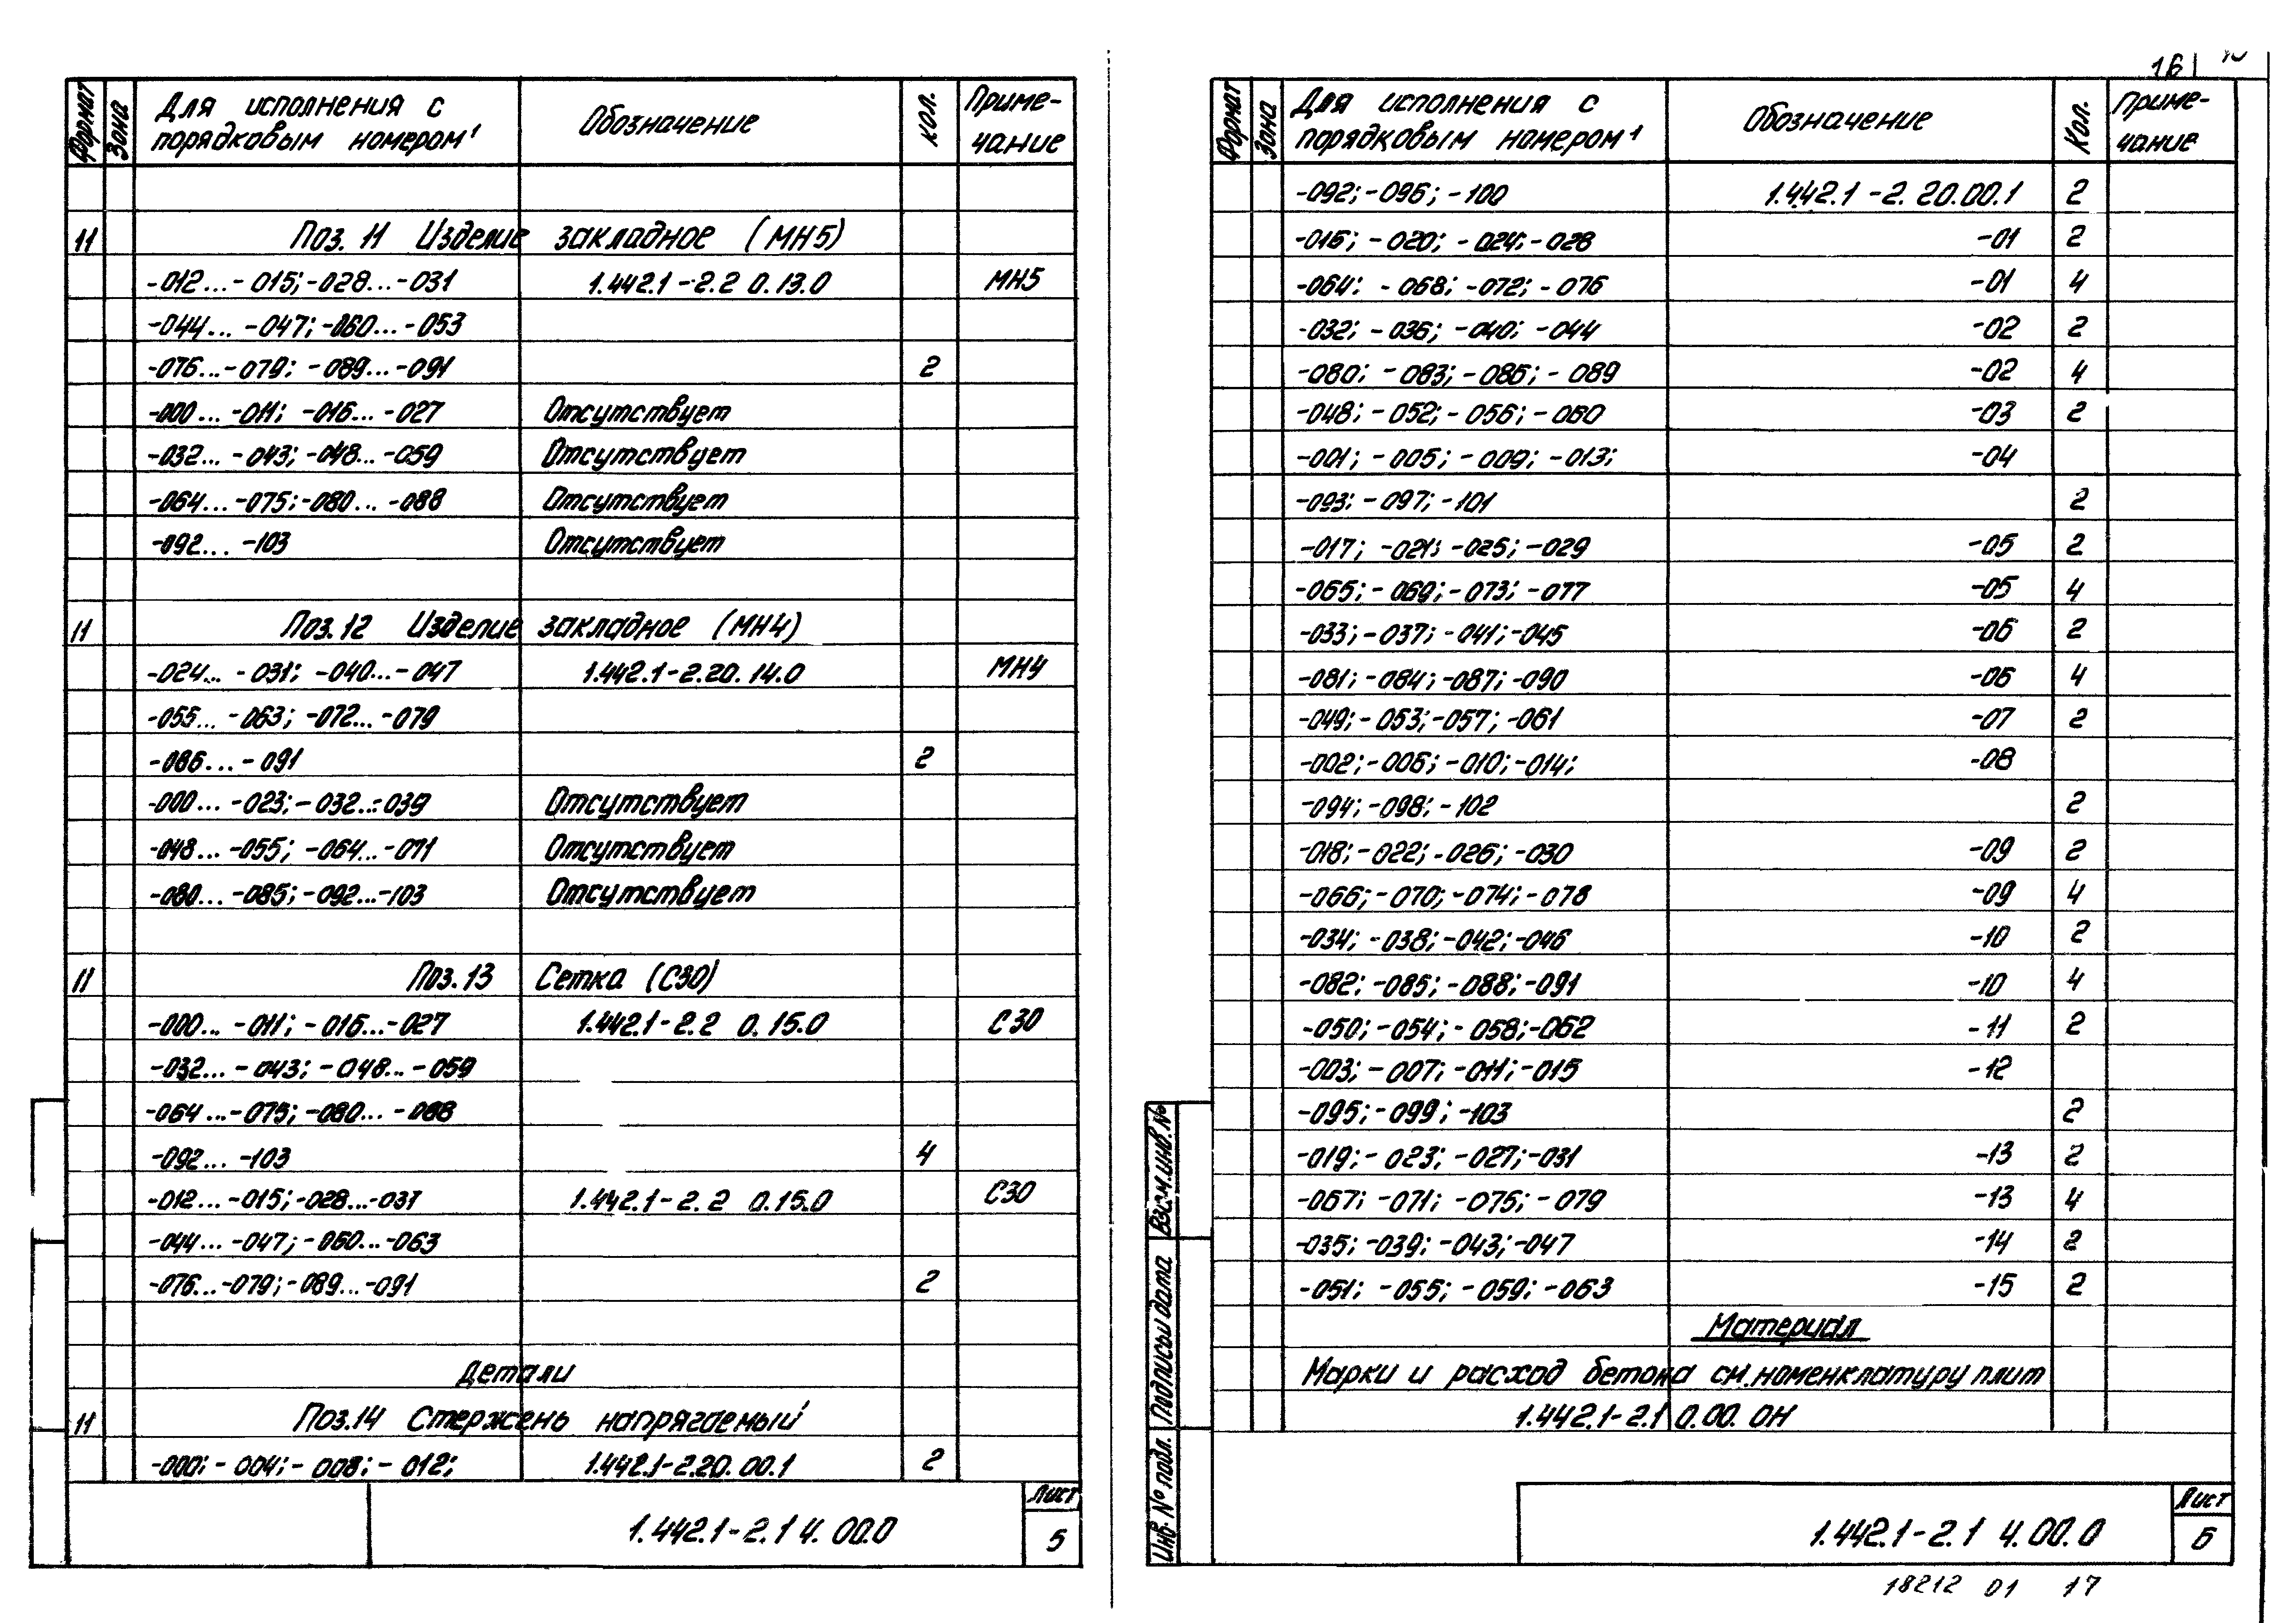 Формат Зона Для исполнения с порядковым номером¹ Обозначение Кол. Примечание
11 Поз. 11 Изделие закладное (МН5)
-012...-015; -028...-031 1.442.1-2.2 0.13.0 МН5
-044...-047; -060...-053
-076...-079; -089...-091 2
-000...-011; -016...-027 Отсутствует
-032...-043; -048...-059 Отсутствует
-064...-075; -080...-088 Отсутствует
-092...-103 Отсутствует
11 Поз. 12 Изделие закладное (МН4)
-024...-031; -040...-047 1.442.1-2.20.14.0 МН4
-055...-063; -072...-079
-086...-091 2
-000...-023; -032...-039 Отсутствует
-048...-055; -064...-071 Отсутствует
-080...-085; -092...-103 Отсутствует
11 Поз. 13 Сетка (С30)
-000...-011; -016...-027 1.442.1-2.2 0.15.0 С30
-032...-043; -048...-059
-064...-075; -080...-088
-092...-103 4
-012...-015; -028...-031 1.442.1-2.2 0.15.0 С30
-044...-047; -060...-063
-076...-079; -089...-091 2
Детали
11 Поз. 14 Стержень напрягаемый
-000; -004; -008; -012; 1.442.1-2.20.00.1 2
1.442.1-2.1 4.00.0
Лист
5
16
Формат Зона Для исполнения с порядковым номером¹ Обозначение Кол. Примечание
-092; -096; -100 1.442.1-2.20.00.1 2
-016; -020; -024; -028 -01 2
-064; -068; -072; -076 -01 4
-032; -036; -040; -044 -02 2
-080; -083; -086; -089 -02 4
-048; -052; -056; -060 -03 2
-001; -005; -009; -013; -04
-093; -097; -101 2
-017; -021; -025; -029 -05 2
-065; -069; -073; -077 -05 4
-033; -037; -041; -045 -06 2
-081; -084; -087; -090 -06 4
-049; -053; -057; -061 -07 2
-002; -006; -010; -014; -08
-094; -098; -102 2
-018; -022; -026; -030 -09 2
-066; -070; -074; -078 -09 4
-034; -038; -042; -046 -10 2
-082; -085; -088; -091 -10 4
-050; -054; -058; -062 -11 2
-003; -007; -011; -015 -12
-095; -099; -103 2
-019; -023; -027; -031 -13 2
-067; -071; -075; -079 -13 4
-035; -039; -043; -047 -14 2
-051; -055; -059; -063 -15 2
Материал
Марки и расход бетона см. номенклатуру плит
1.442.1-2.1 0.00.0Н
Взам. инв. №
Подпись и дата
Инв. № подл.
1.442.1-2.1 4.00.0
Лист
6
18212 01 17